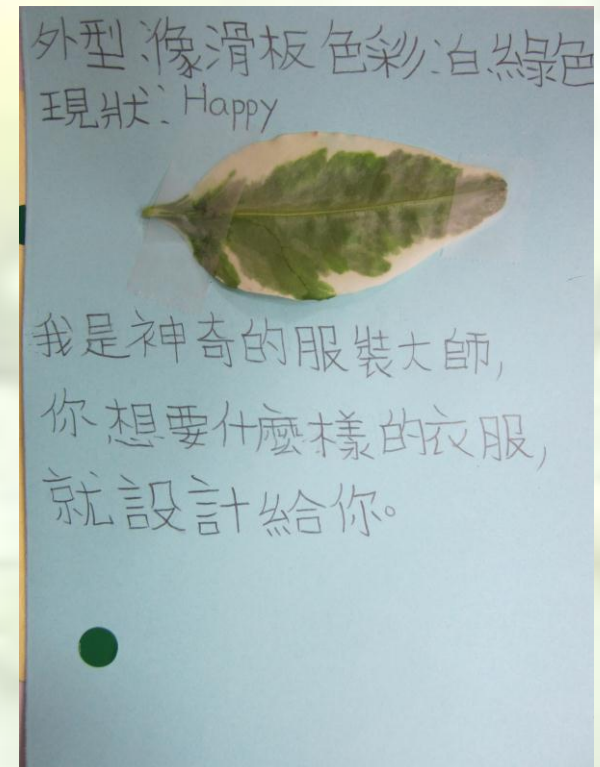 外型:像滑板 色彩:白.綠色
現狀: Happy
我是神奇的服裝大師,
你想要什麼樣的衣服,
就設計給你。